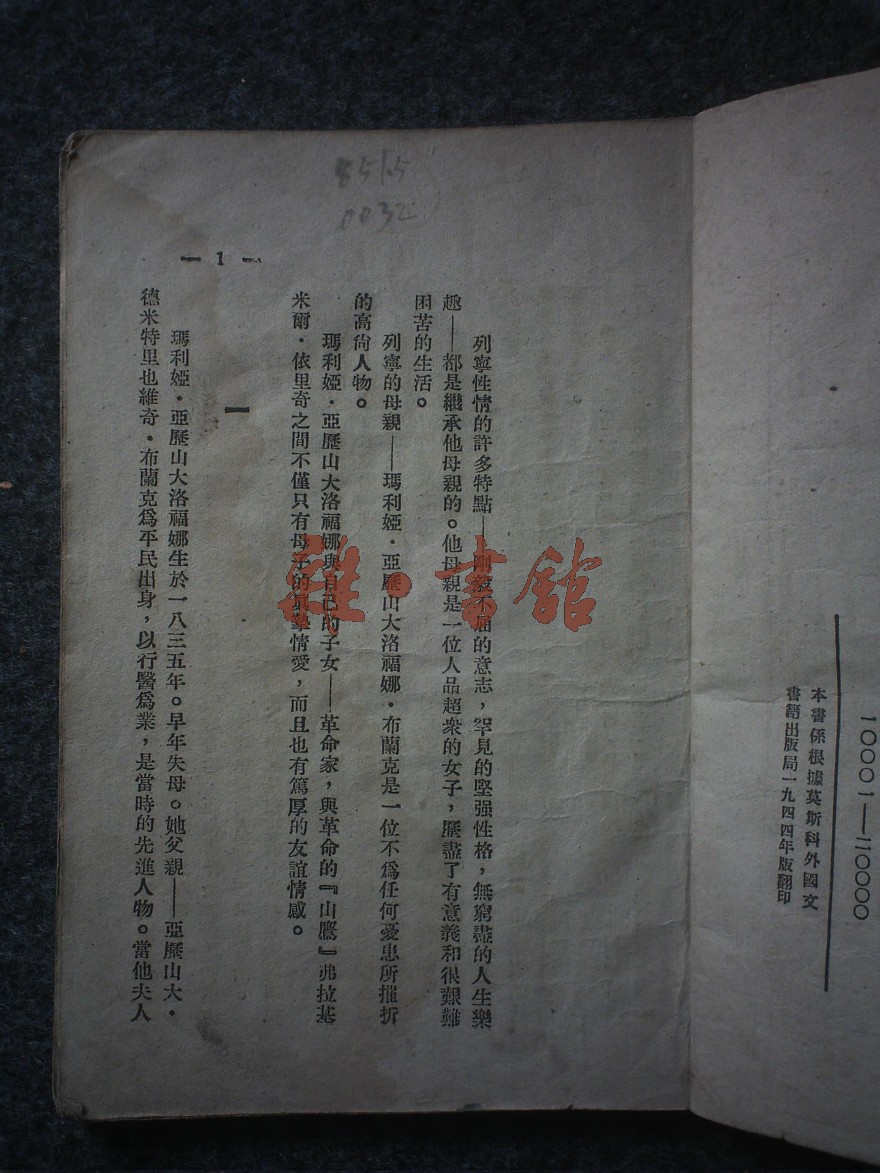 一〇〇〇一——二〇〇〇〇
本書係根據莫斯科外國文
書籍出版局一九四四年版翻印
5515
0032
— 1 —
列寧性情的許多特點——剛毅不屈的意志，罕見的堅强性格，無窮盡的人生樂
趣——都是繼承他母親的。他母親是一位人品超衆的女子，歷盡了有意義和很艱難
困苦的生活。
列寧的母親——瑪利婭·亞歷山大洛福娜·布蘭克是一位不爲任何憂患所摧折
的高尙人物。
瑪利婭·亞歷山大洛福娜與自己的子女——革命家，與革命的『山鷹』弗拉基
米爾·依里奇之間不僅只有母子的眞摯情愛，而且也有篤厚的友誼情感。
一
瑪利婭·亞歷山大洛福娜生於一八三五年。早年失母。她父親——亞歷山大·
德米特里也維奇·布蘭克爲平民出身，以行醫爲業，是當時的先進人物。當他夫人
雜·書館